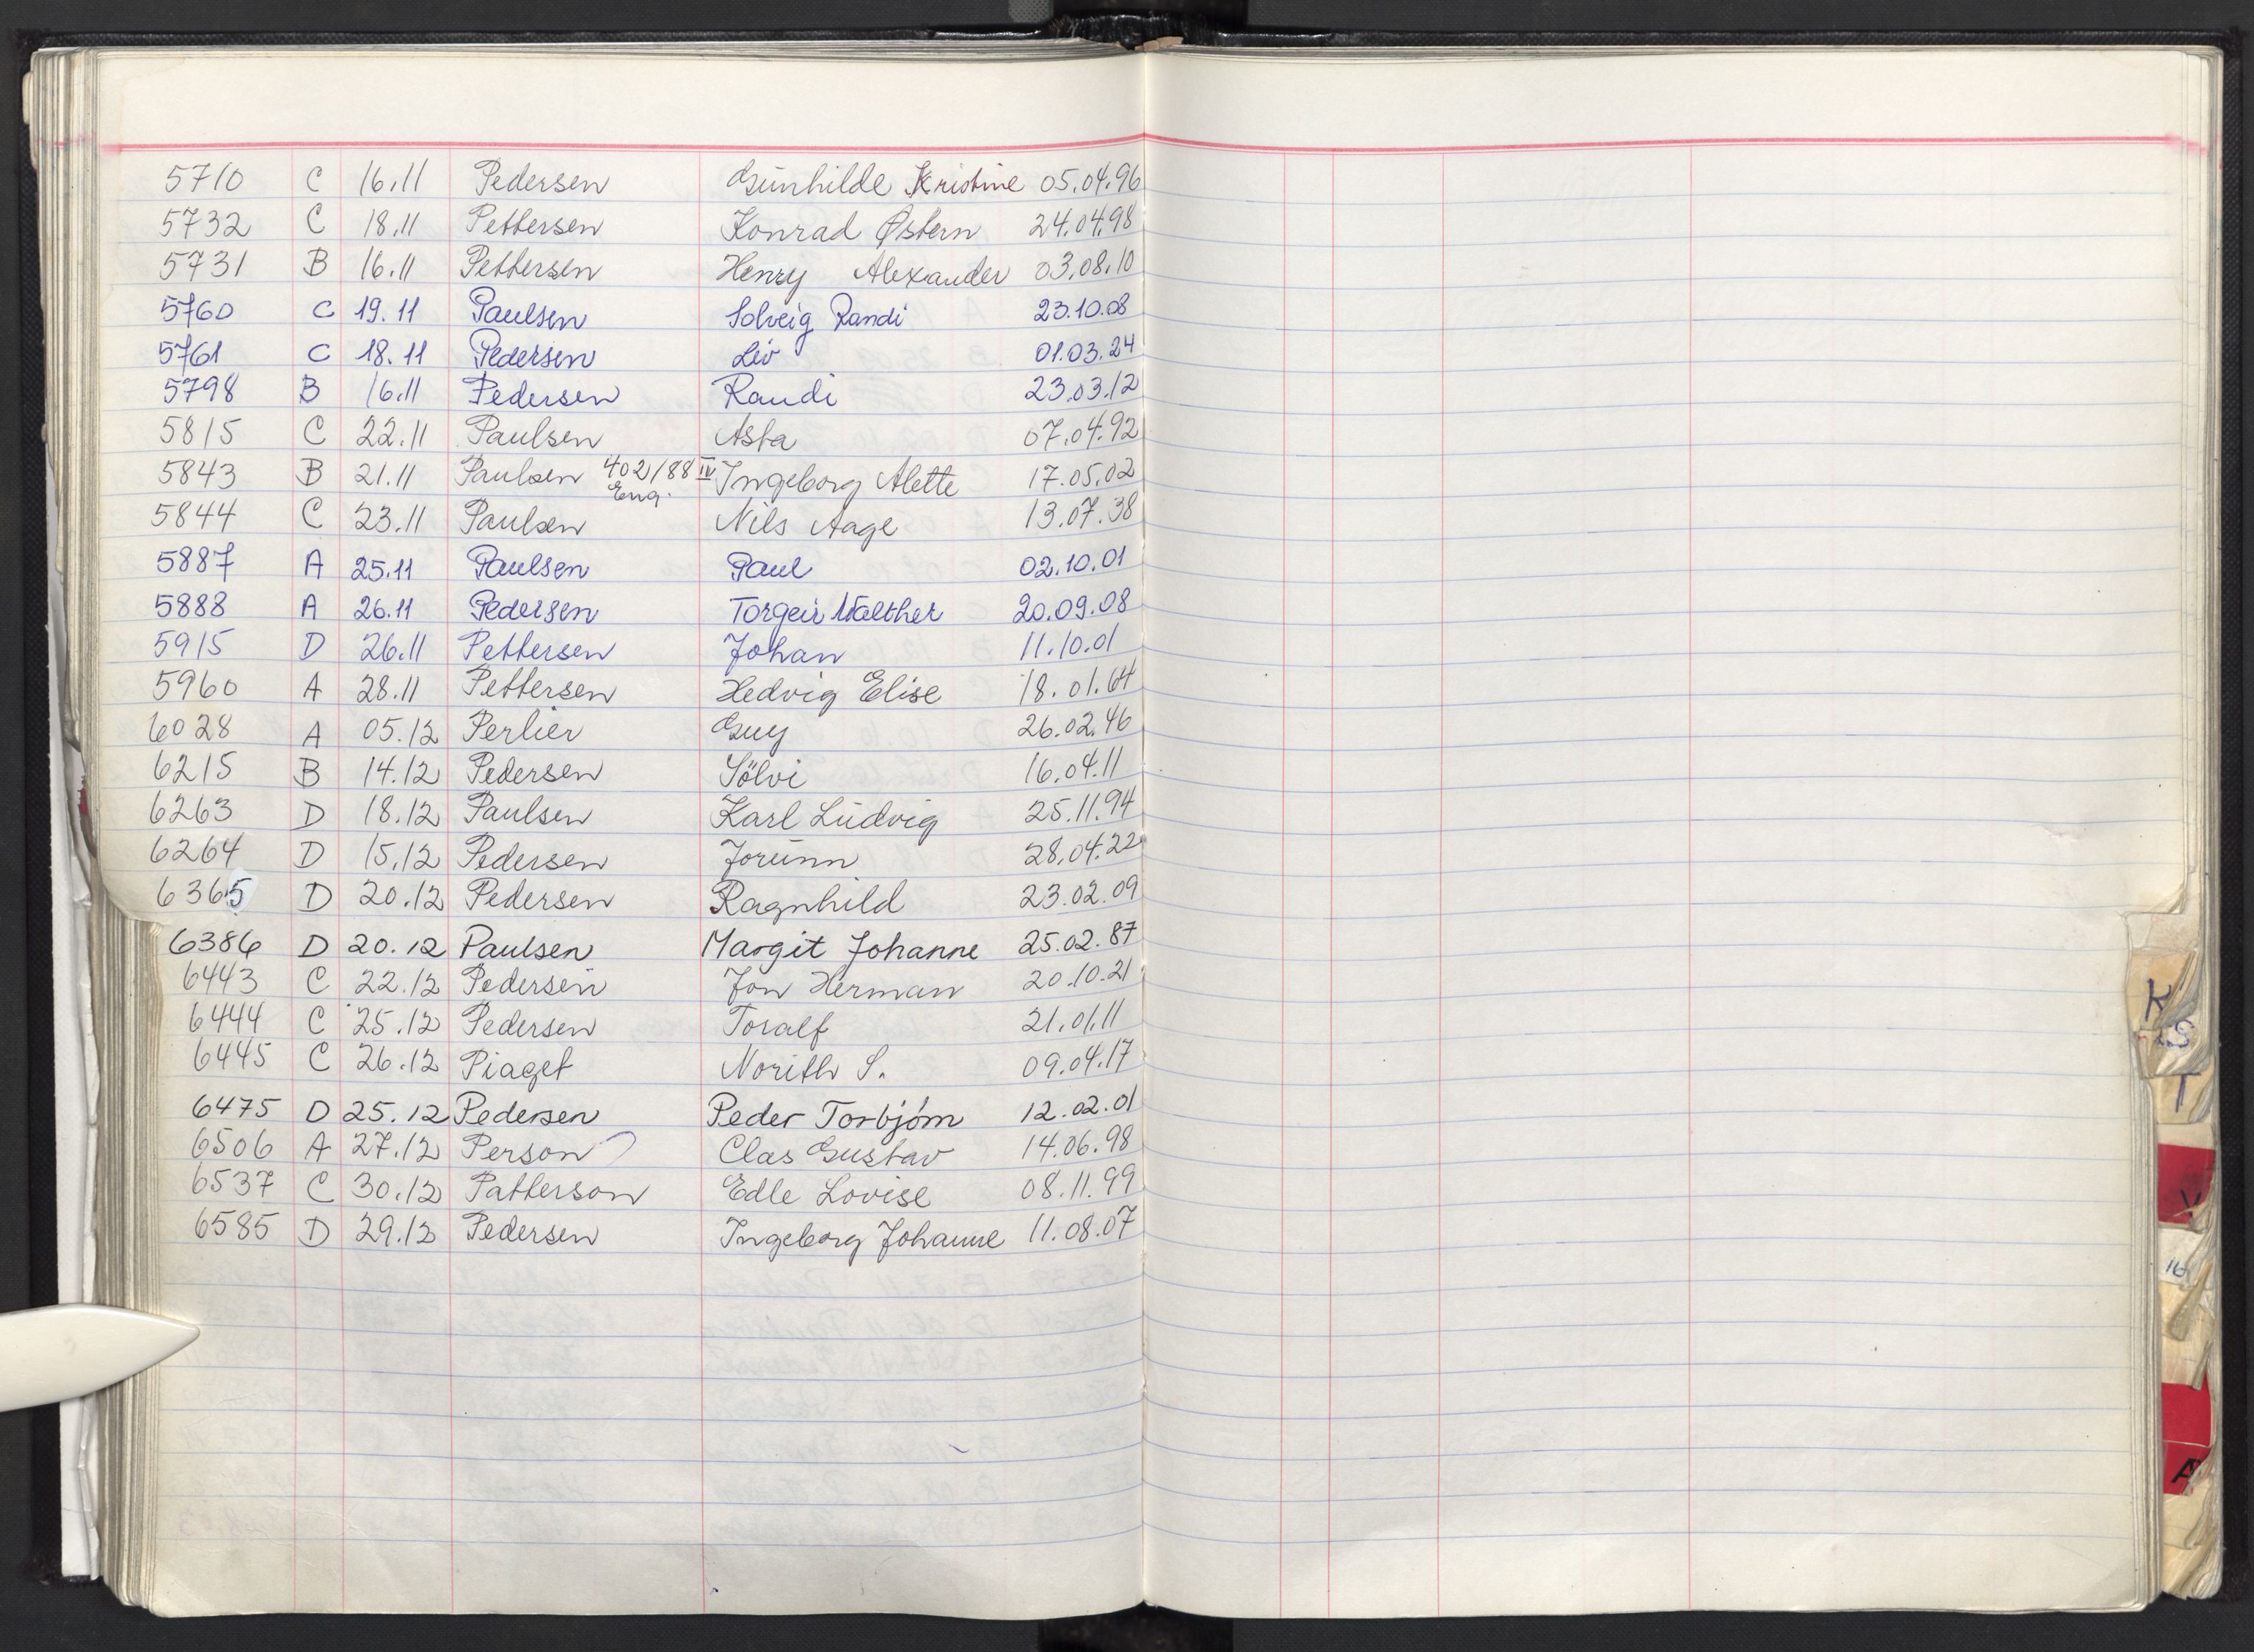 5710 C 16.11 Pedersen Gunhilde Kristine 05.04.96
5732 C 18.11 Pettersen Konrad Østern 24.04.98
5731 B 16.11 Pettersen Henry Alexander 03.08.10
5760 C 19.11 Paulsen Solveig Randi 23.10.08
5761 C 18.11 Pedersen Liv 01.03.24
5798 B 16.11 Pedersen Randi 23.03.12
5815 C 22.11 Paulsen Asta 07.04.92
5843 B 21.11 Paulsen 402/88 IV Ingeborg Alette 17.05.02
Eng.
5844 C 23.11 Paulsen Nils Aage 13.07.38
5887 A 25.11 Paulsen Paul 02.10.01
5888 A 26.11 Pedersen Torgeir Walther 20.09.08
5915 D 26.11 Pettersen Johan 11.10.01
5960 A 28.11 Pettersen Hedvig Elise 18.01.64
6028 A 05.12 Perlier Guy 26.02.46
6215 B 14.12 Pedersen Sölvi 16.04.11
6263 D 18.12 Paulsen Karl Ludvig 25.11.94
6264 D 15.12 Pedersen Jorunn 28.04.22
6365 D 20.12 Pedersen Ragnhild 23.02.09
6386 D 20.12 Paulsen Margit Johanne 25.02.87
6443 C 22.12 Pedersen Jon Herman 20.10.21
6444 C 25.12 Pedersen Toralf 21.01.11
6445 C 26.12 Piaget Norith S. 09.04.17
6475 D 25.12 Pedersen Peder Torbjørn 12.02.01
6506 A 27.12 Person Clas Gustav 14.06.98
6537 C 30.12 Patterson Edle Lovise 08.11.99
6585 D 29.12 Pedersen Ingeborg Johanne 11.08.07
K
S
T
V